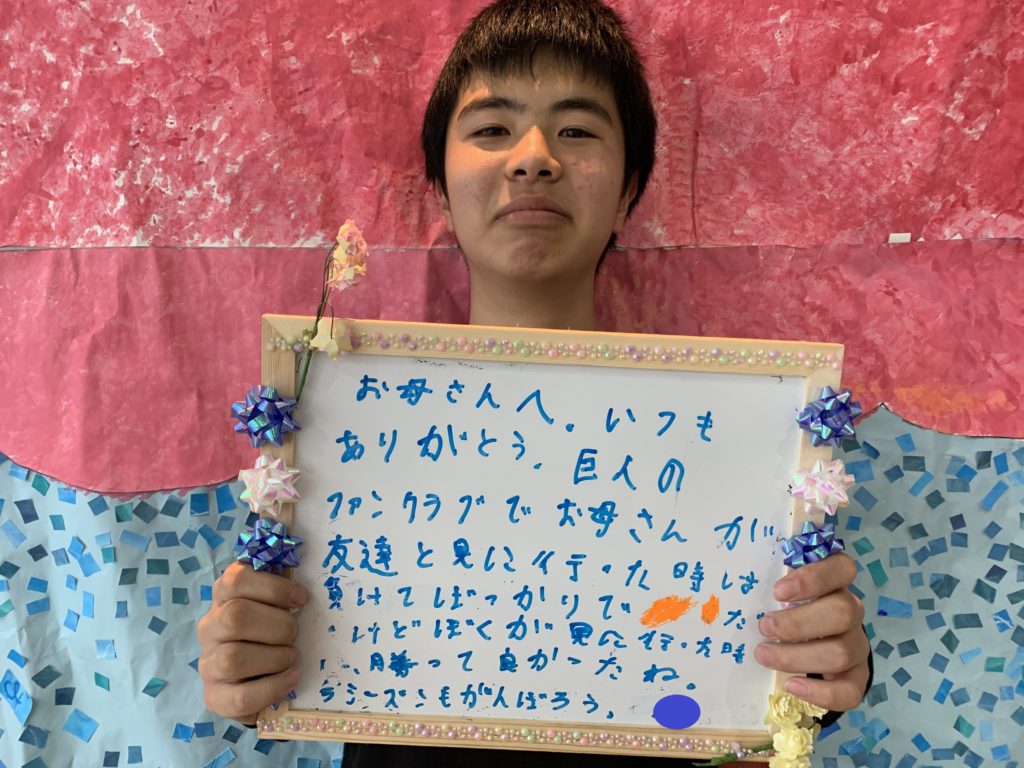 お母さんへ。いつも
ありがとう。巨人の
ファンクラブでお母さんが
友達と見に行った時は
負けてばっかりで だ
けどぼくが見に行った時
は、勝って良かったね。
シーズンもがんばろう。